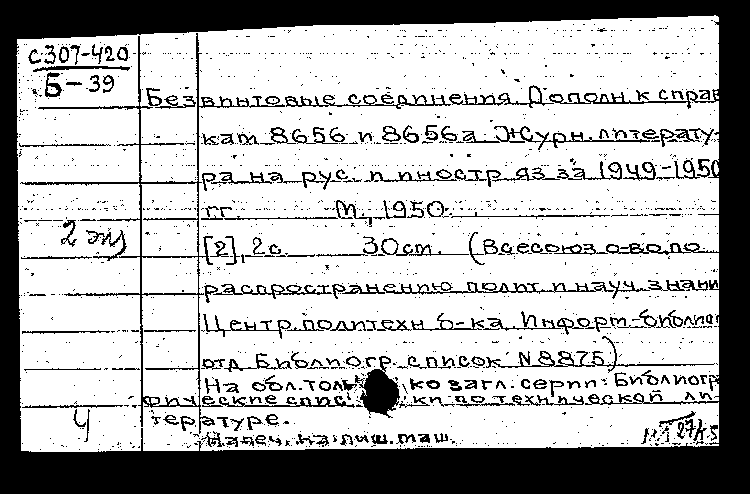 С307-420
Б-39
Безвинтовые соединения. Дополн. к справ
кам 8656 и 8656а. Журн. литерату-
ра на рус. и иностр. яз. за 1949-1950
гг. М., 1950.
2 экз
[2], 2 с. 30 см. (Всесоюз. о-во по
распространению полит. и науч. знани
Центр. политехн. б-ка. Информ.-библиог
отд. Библиогр. список N 8875)
На обл. толь ко загл. серии: Библиогр
фические спис ки по технической ли-
тературе.
Ч
Напеч. на пиш. маш.